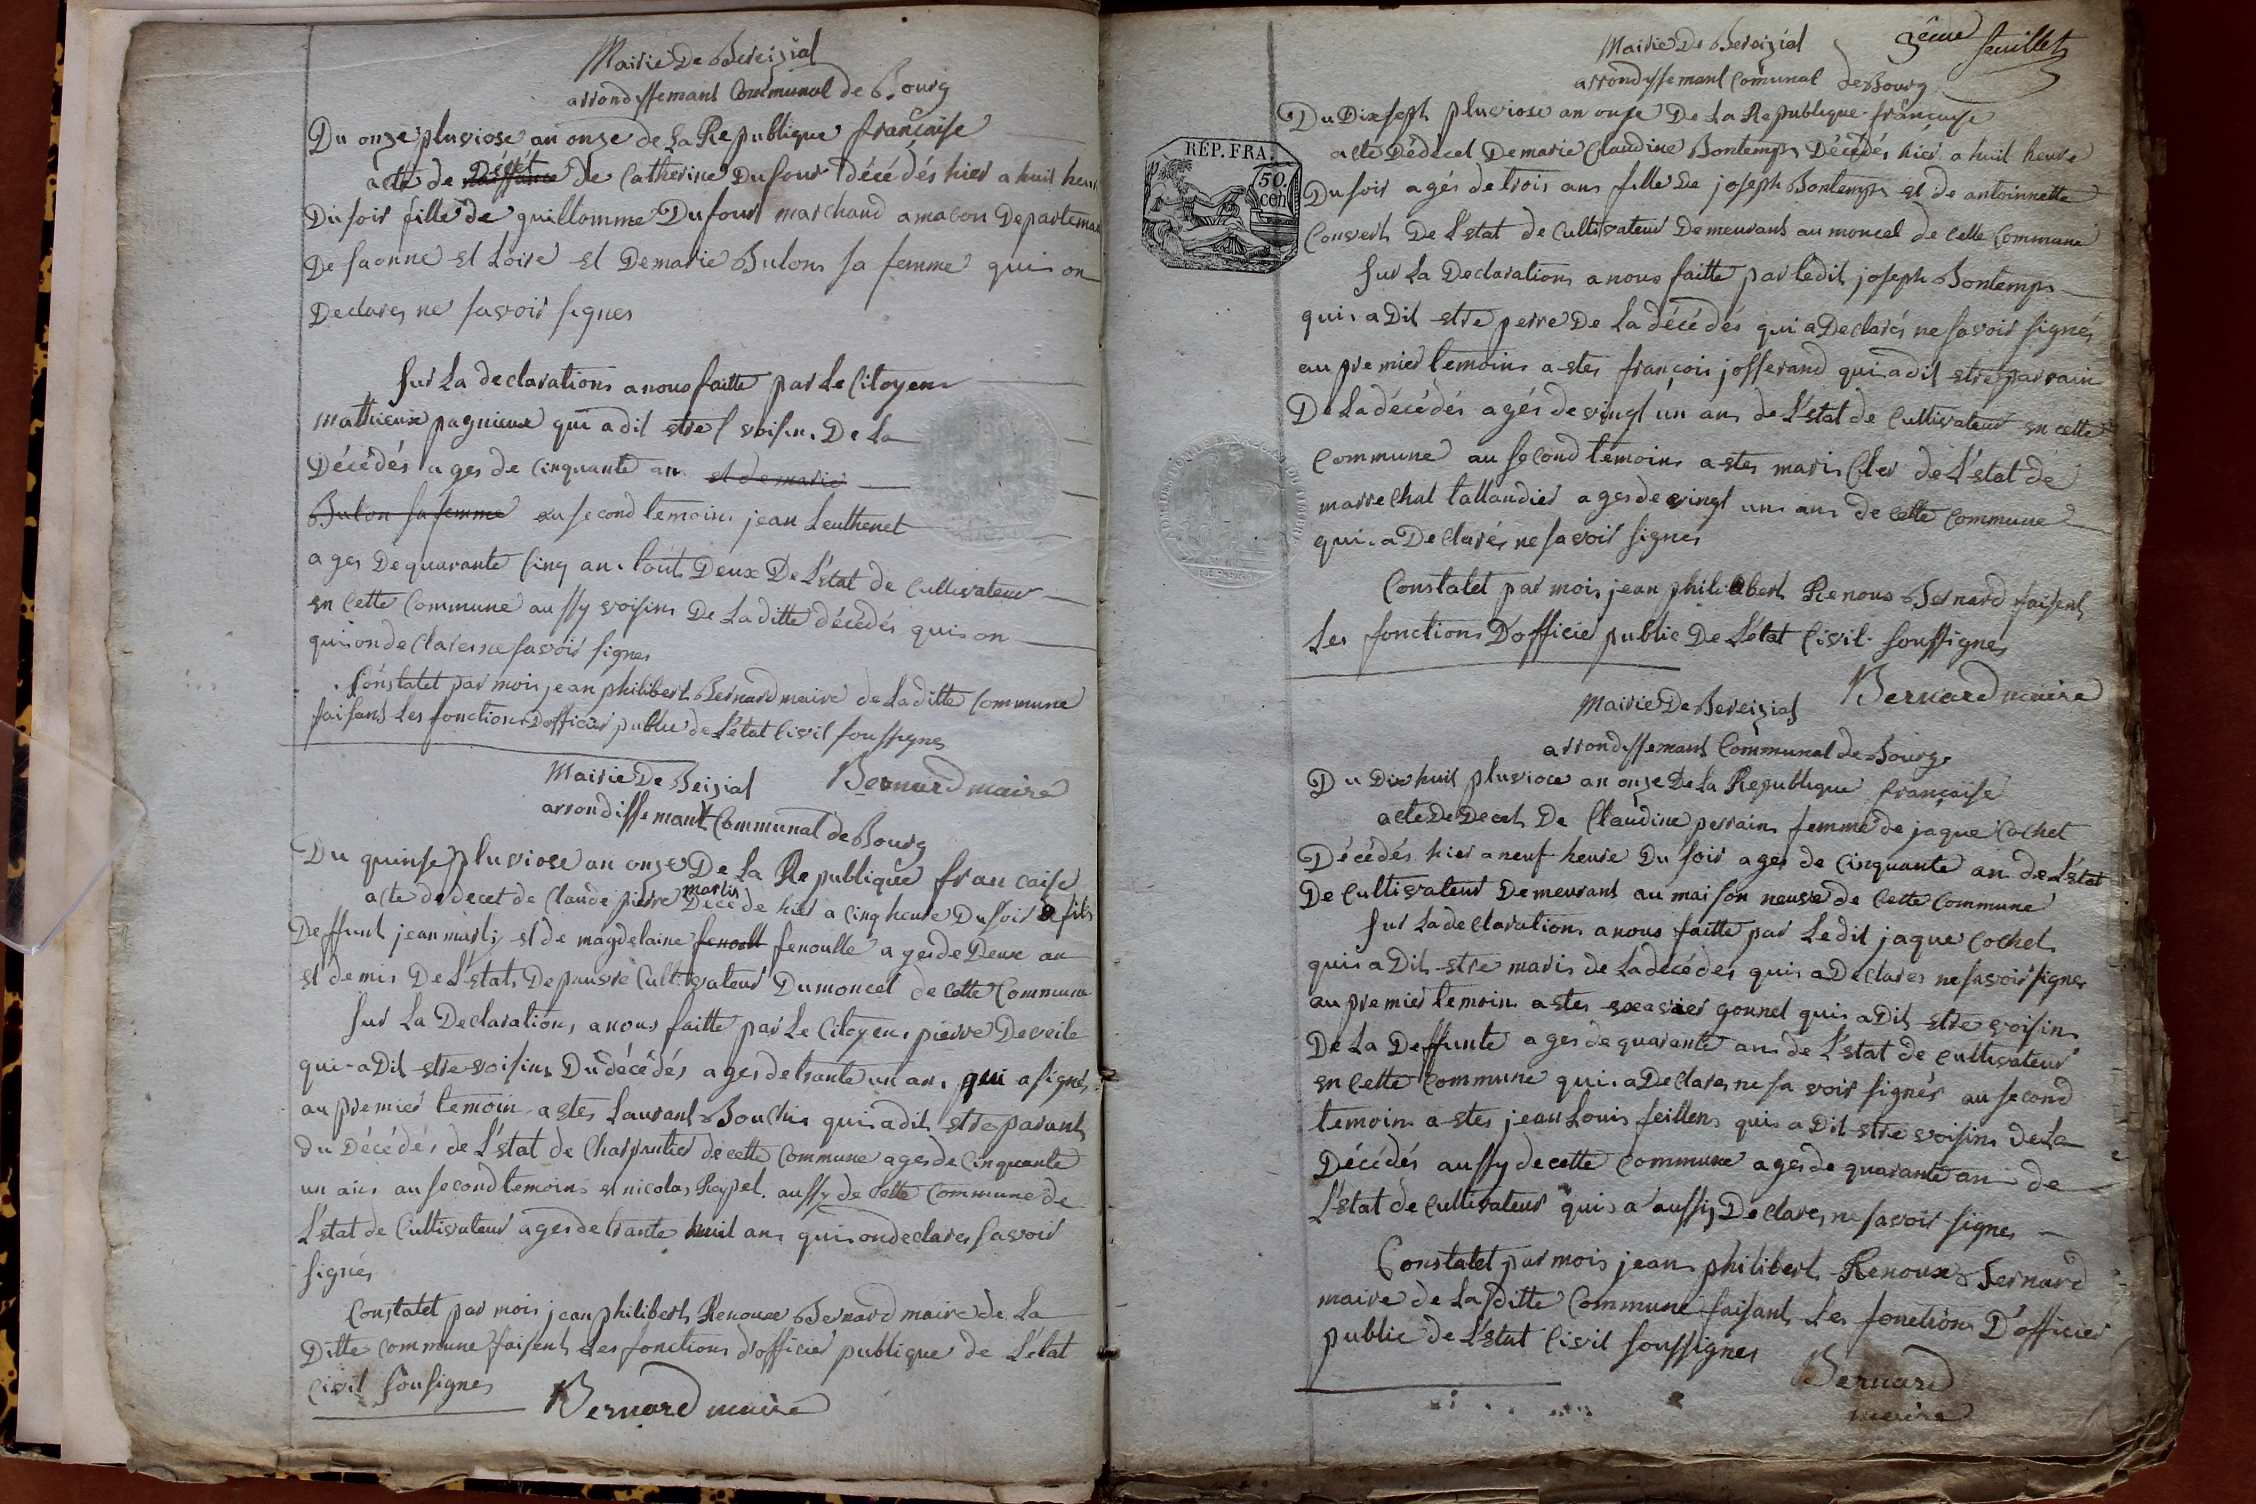 Mairie De Bereizial
arrondissemant Communal de Bourg
Du onze pluviose an onze de La Republique française
acte de naissance décét de Catherine Dufour décédés hier a huit heur
Du soir fille de guillomme Dufour marchand a macon Departeman
De saonne et Loire et De marie Bulons sa femme quis on
Declares ne savoir signes
sur La declarations a nous faitte par Le Citoyens
mathieux pagnieux qui a dit estre voisin De La
Décédés ages de Cinquante an et de marie
Bulon sa femme au second temoins jean Leuthenet
ages De quarante Cinq an touts Deux De L'état de Cultivateur
en Cette Commune aussy voisins De La ditte décédés quis on
quis on declares ne savoir signes
Constatet par mois jean philibert Bernard maire de La ditte Commune
faisant Les fonctions D'officier public de L'état Civil soussignes
Bernard maire
Mairie De Beizial
arrondissemant Communal de Bourg
Du quinse pluviose an onze De La Republique francaise
acte de decet de Claude pierre martin Décéde hier a Cinq heure Du soir fils
Deffunt jean marti et de magdelaine fenoult fenoulle ages de Deux an
et demis De L'estat De pauvre Cultivateur Du moncel de Cette Commune
sur La Declarations a nous faitte par Le Citoyens pierre Deveile
qui a Dit estre voisins Du décédés ages de trante un an qui a signés
au premier temoin astes Laurant Bouchis quis a dit estre parants
du Décédés de L'estat de Charpantier de cette Commune ages de Cinquante
un ans au second temoins et nicolas Roypel aussy de Cette Commune de
L'estat de Cultivateur ages de trante huit ans quis on declares savoir
signés
Constatet par mois jean philibert Renoux Bernard maire de La
Ditte Commune faisent Les fonctions d'officier publique de L'état
Civil sousignes
Bernard maire
3ème feuillet
Mairie De Bereizial
arrondyssemant Comunal de Bourg
RÉP. FRA.
50. cen
Du Dix sept pluviose an onze De La Republique française
acte Dédécet De marie Claudine Bontemps Décédés hier a huit heure
Du soir agés de trois ans fille De joseph Bontemps et de antoinnette
Convert De L'estat de Cultivateur Demeurans au moncel de Cette Commune
sur La Declarations a nous faitte par Ledit joseph Bontemps
quis a Dit estre perre De La décédés qui a Declarés ne savoir signés
au premier temoins astes françois josserand quis a dit estre parrain
De La décédés agés de vingt un ans de L'estat de Cultivateur en cette
Commune au second temoins astes maris Cler de L'estat de
marrechal tallandier ages de vingt uns ans de Cette Commune
quis a Declarés ne savoir signes
Constatet par mois jean philibert Renoux Bernard faisent
Les fonctions D'officier public De L'état Civil soussignes
Bernard maire
Mairie De Bereizial
arrondissemans Communal de Bourg
Du Dix huit pluvioce an onze De La Republique française
acte De Decet De Claudine perrains femme de jaque Cochet
Décédés hier a neuf heure Du soir ages de Cinquante an de L'estat
De Cultivateur Demeurans au maison neuve de Cette Commune
sur La declarations a nous faitte par Ledit jaque Cochet
quis a Dit estre maris de La décédés quis a Declares ne savoir signes
au premier temoin astes exavier gonnet quis a Dit estre voisin
De La Deffunte ages de quarante ans de L'estat de cultivateur
en Cette Commune quis a Declares ne savoir signés au second
temoins astes jean Louis feillens quis a Dit estre voisins de La
Décédés aussy de cette Commune ages de quarante an de
L'estat de cultivateur quis a aussis Declares ne savoir signes
Constatet par mois jeans philibert Renoux Bernard
maire de La Ditte Commune faisant Les fonctions D'officier
public de L'estat Civil soussignes
Bernard
maire